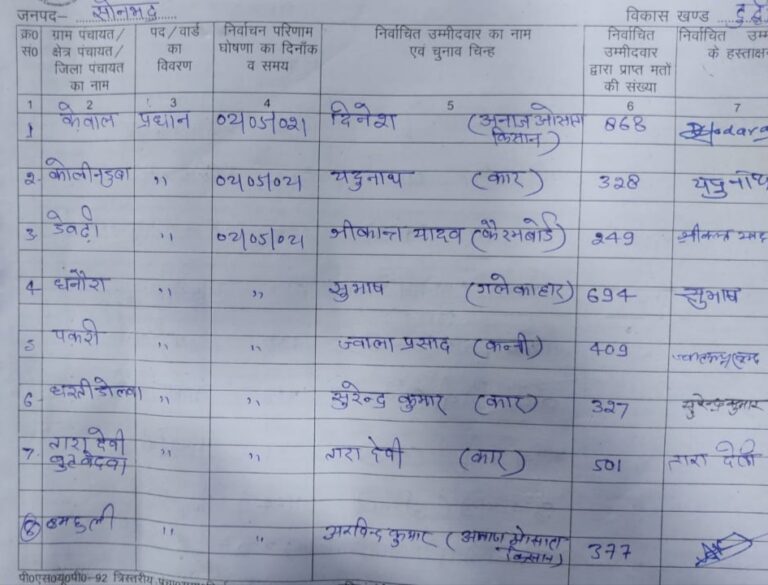 जनपद- सोनभद्र विकास खण्ड
क्र०सं० ग्राम पंचायत/क्षेत्र पंचायत/जिला पंचायत का नाम पद/वार्ड का विवरण निर्वाचन परिणाम घोषणा का दिनाँक व समय निर्वाचित उम्मीदवार का नाम एवं चुनाव चिन्ह निर्वाचित उम्मीदवार द्वारा प्राप्त मतों की संख्या निर्वाचित उम के हस्ताक्ष
1 2 3 4 5 6 7
1 केवाल प्रधान 02/05/021 दिनेश (अनाज ओसाता किसान) 868
2. कोलीनडुबा ,, 02/05/021 यदुनाथ (कार) 328 यदुनाथ
3. डेवढ़ी ,, 02/05/021 श्रीकान्त यादव (कैरमबोर्ड) 249
4 धनौरा ,, ,, सुभाष (गले का हार) 694 सुभाष
5 पकरी ,, ,, ज्वाला प्रसाद (कन्नी) 409
6 धरतीडोलवा ,, ,, सुरेन्द्र कुमार (कार) 327 सुरेन्द्र कुमार
7. तारा देवी ,, ,, तारा देवी (कार) 501 तारा देवी
8 बमहुली ,, ,, अरविन्द कुमार (अनाज ओसाता किसान) 377
पी०एस०यू०पी०-92 त्रिस्तरीय